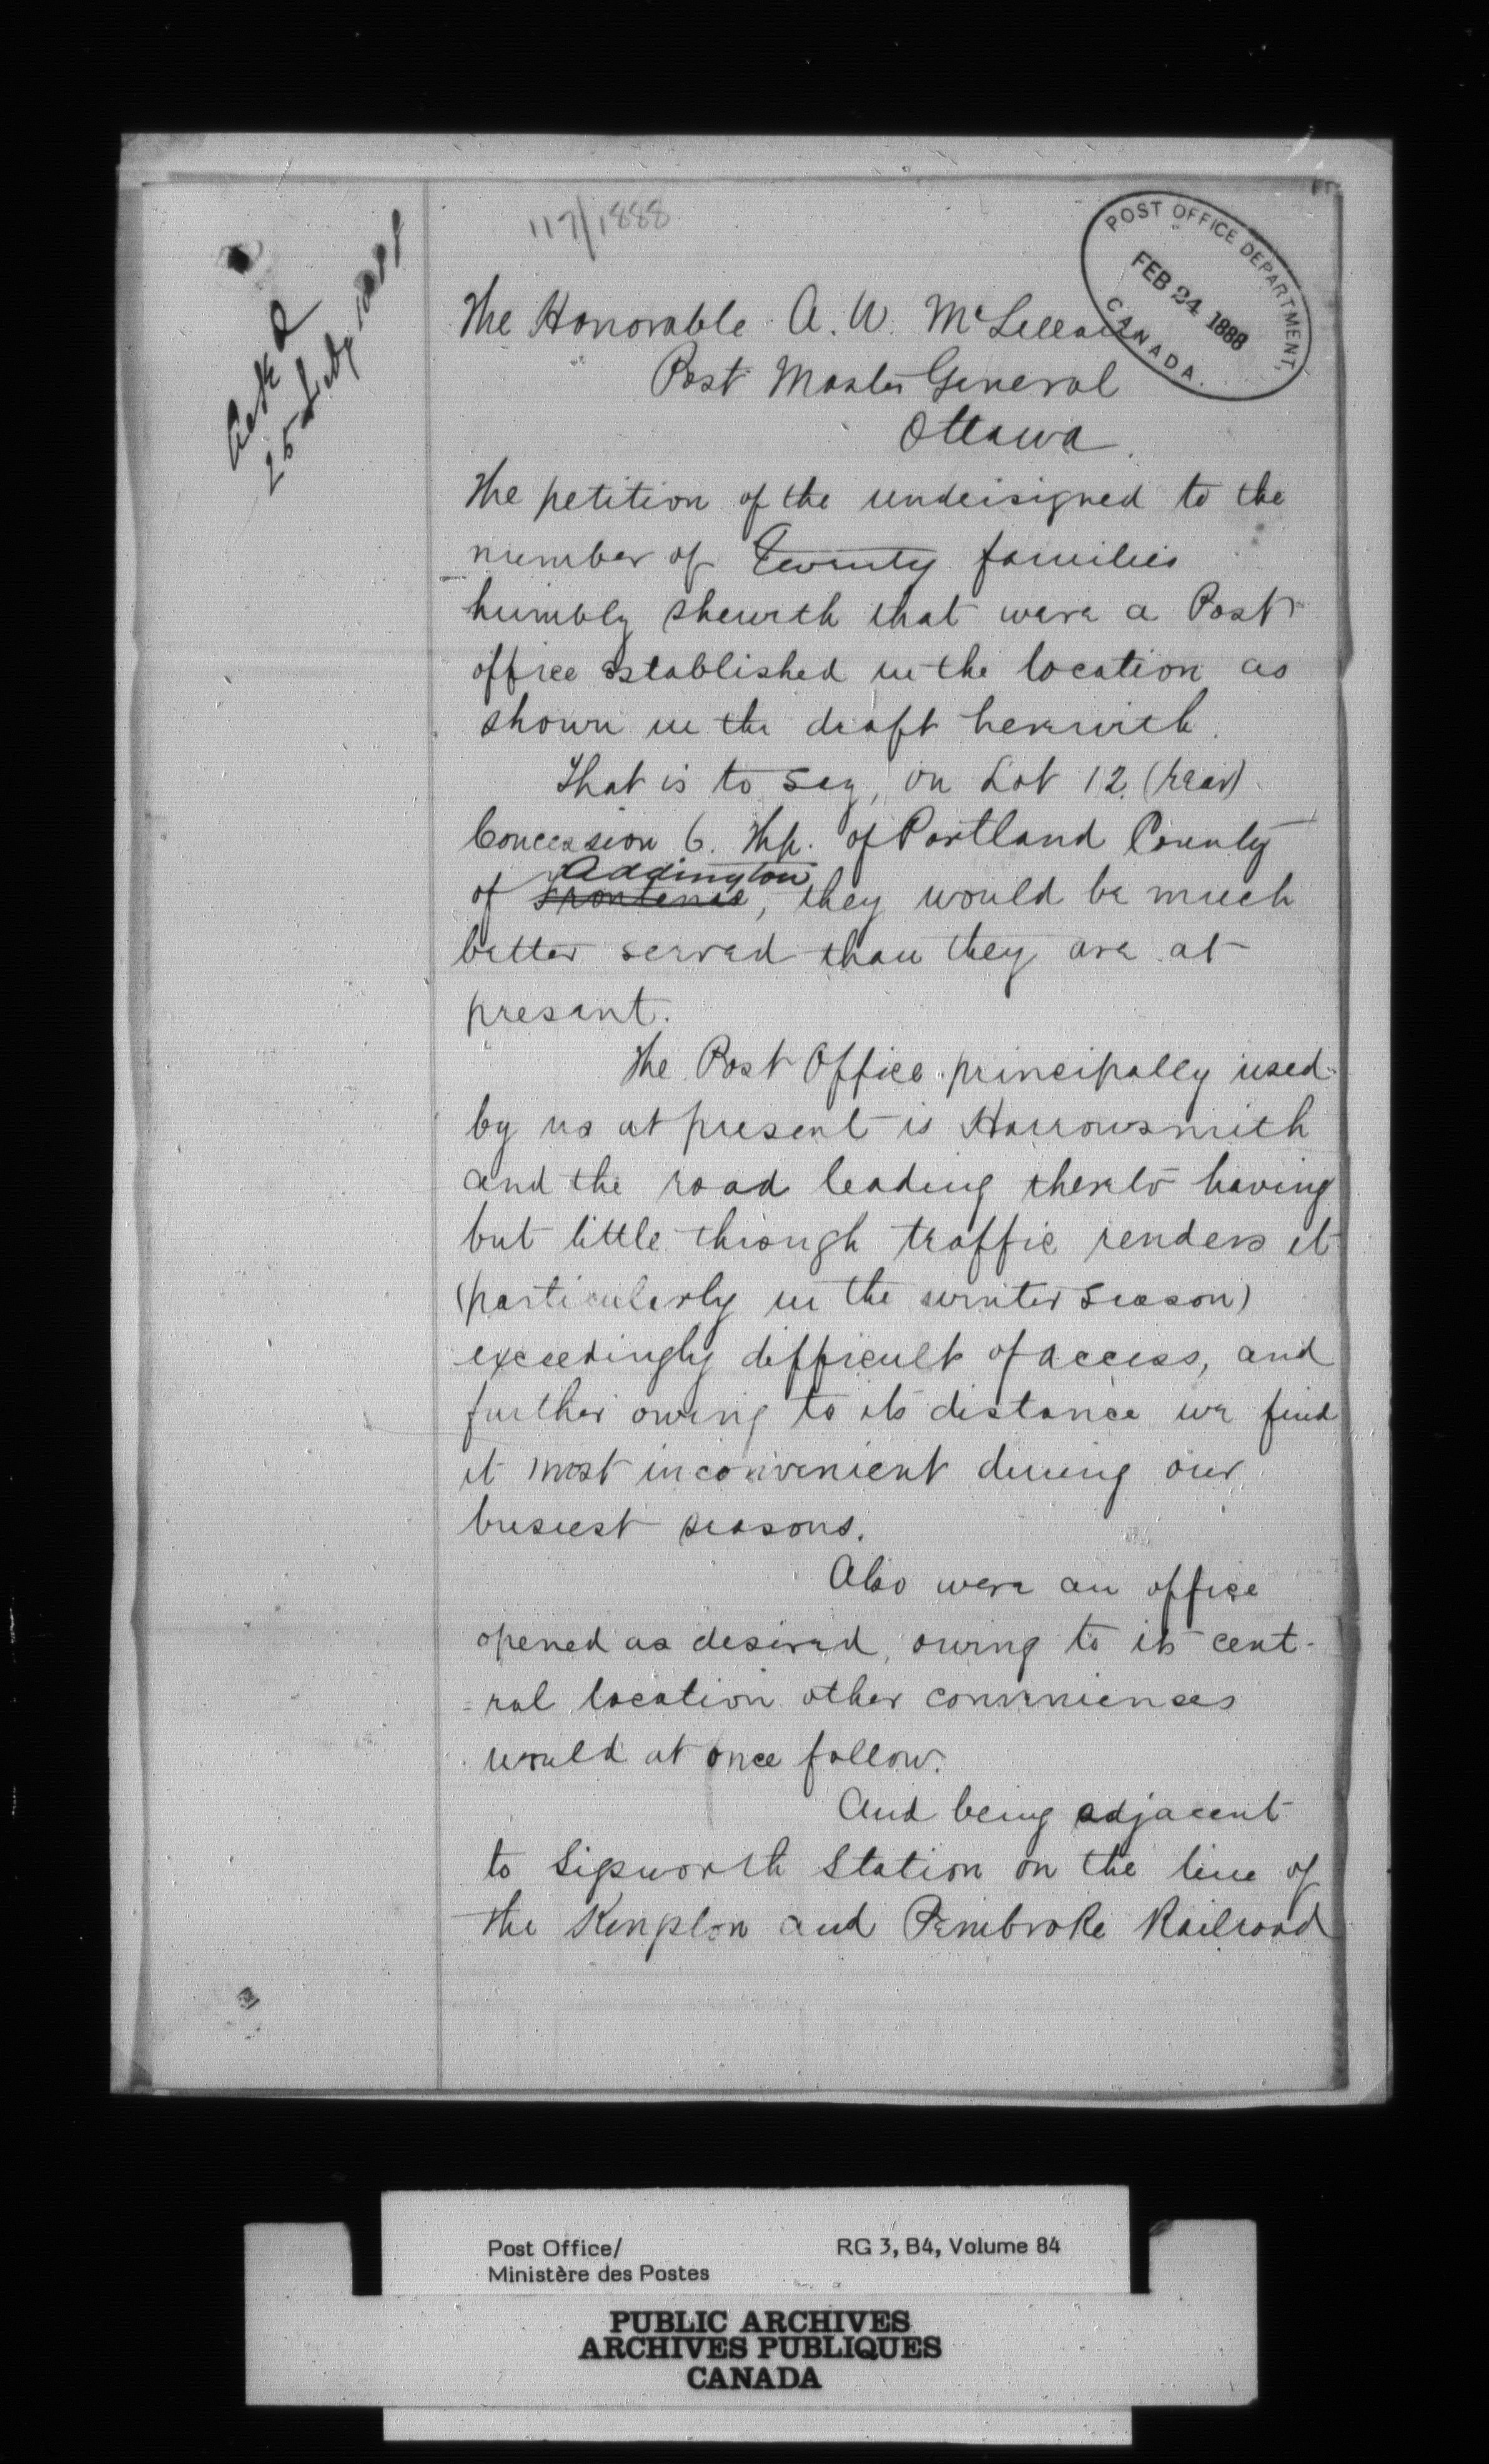 117/1888
POST OFFICE DEPARTMENT,
FEB 24 1888
CANADA.
Ackd
25 Feby 1888
The Honorable A. W. McLellan
Post Master General
Ottawa.
The petition of the undersigned to the
number of Twenty families
humbly sheweth that were a Post
office established in the location as
shown in the draft herewith.
That is to say, on Lot 12. (rear)
Concession 6. Thp. of Portland County
Addington
of Frontenac, they would be much
better served than they are at
present.
The Post Office principally used
by us at present is Harrowsmith
and the road leading thereto having
but little through traffic renders it
(particularly in the winter season)
exceedingly difficult of access, and
further owing to its distance we find
it most inconvenient during our
busiest seasons.
Also were an office
opened as desired, owing to its cent-
=ral location other conveniences
would at once follow.
And being adjacent
to Sigsworth Station on the line of
the Kingston and Pembroke Railroad
Post Office/
Ministère des Postes
RG 3, B4, Volume 84
PUBLIC ARCHIVES
ARCHIVES PUBLIQUES
CANADA